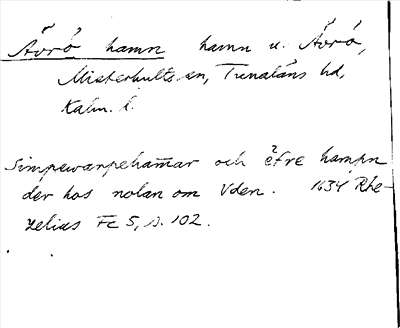 Ävrö hamn hamn u. Ävrö,
Misterhults sn, Tunaläns hd,
Kalm. l.
Simpewarpehamar och efre hampn
der hos nolan om Vden. 1634 Rhe-
zelius Fc 5, s. 102.